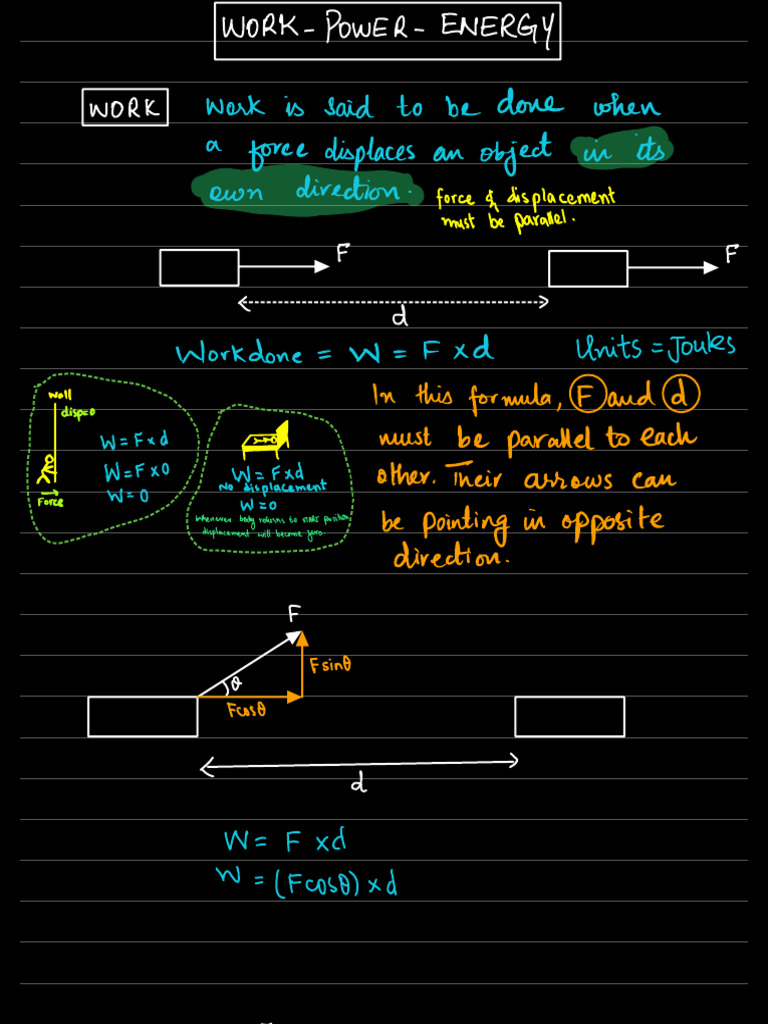 WORK - POWER - ENERGY
WORK
Work is said to be done when
a force displaces an object in its
own direction.
force & displacement
must be parallel.
F
F
d
Workdone = W = F x d
Units = Joules
Wall
disp=0
W = F x d
W = F x 0
W = 0
Force
W = F x d
No displacement
W = 0
Whenever body returns to start position
displacement will become zero.
In this formula, F and d
must be parallel to each
other. Their arrows can
be pointing in opposite
direction.
F
θ
F sinθ
Fcosθ
d
W = F x d
W = (Fcosθ) x d